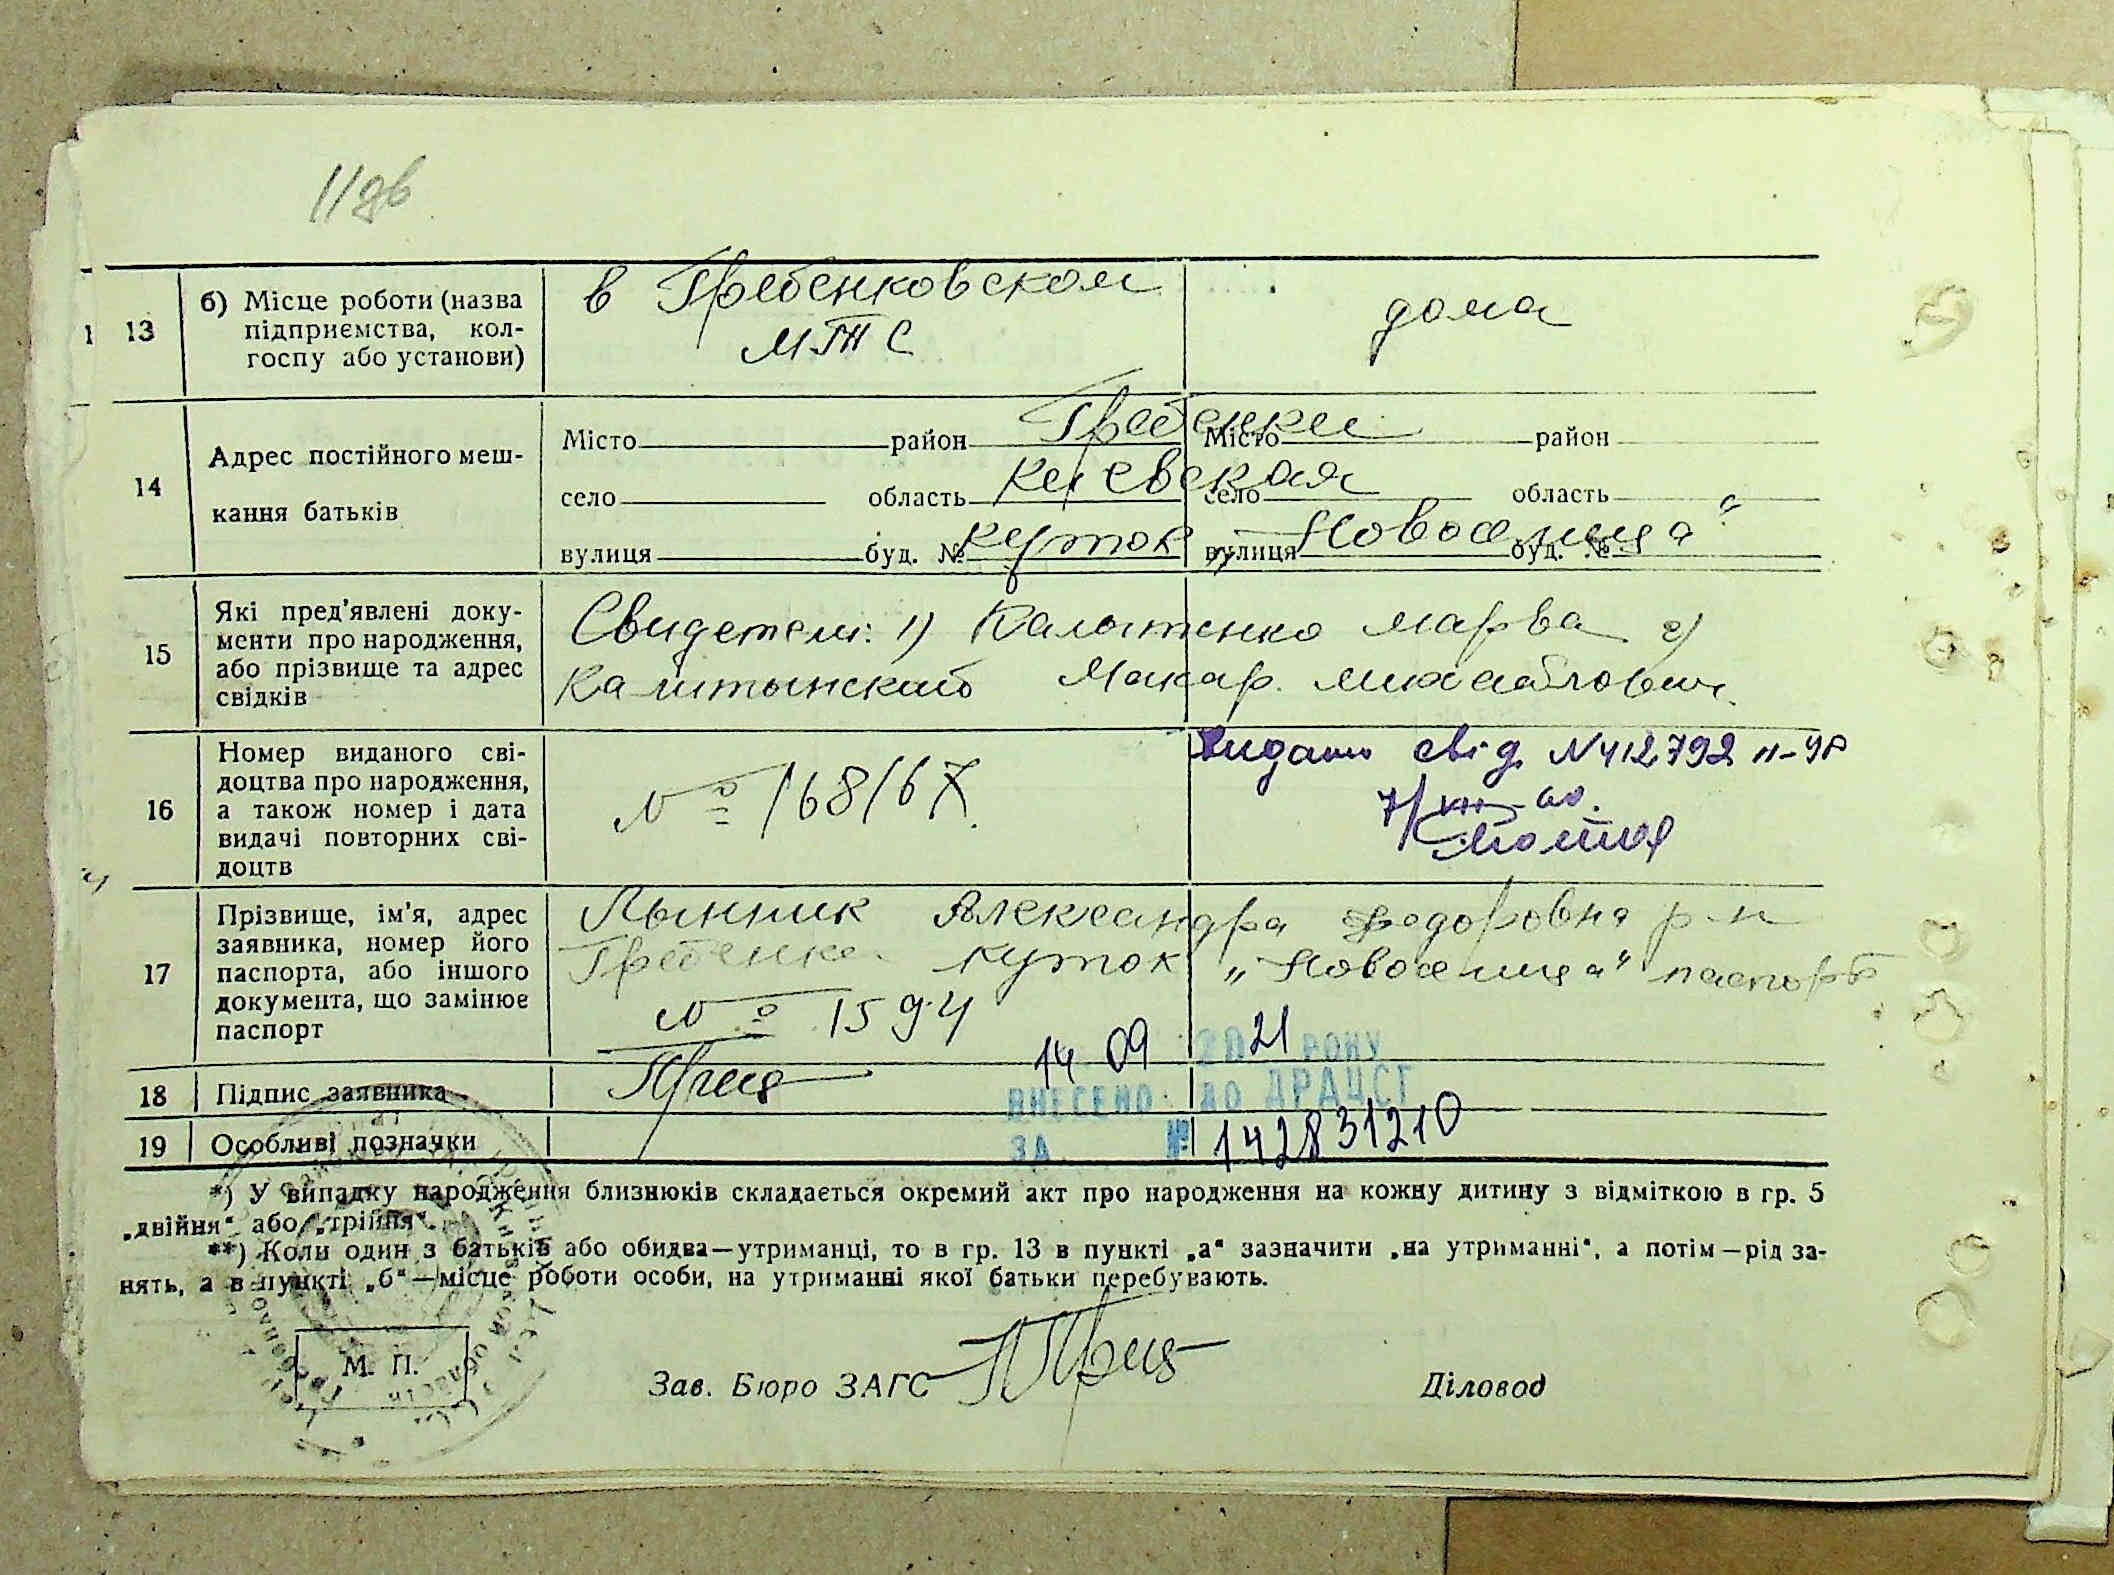 11 зв
13
б) Місце роботи (назва
підприємства, кол-
госпу або установи)
в Гребенковском
МТС
дома
14
Адрес постійного меш-
кання батьків
Місто район Гребенки Місто район
село область Киевская село область
вулиця буд. № куток вулиця „Новоселица“ буд. №
15
Які пред'явлені доку-
менти про народження,
або прізвище та адрес
свідків
Свидетели: 1) Калытенко Марва 2)
Калитынский Макар Михайлович
16
Номер виданого сві-
доцтва про народження,
а також номер і дата
видачі повторних сві-
доцтв
№ 168167
Видано свід. N 412792 II-УР
7/VII-60.
17
Прізвище, ім'я, адрес
заявника, номер його
паспорта, або іншого
документа, що замінює
паспорт
Лынник Александра Федоровна р-н
Гребенки куток „Новоселица“ паспорт
№ 1594
14 09 2021 РОКУ
18
Підпис заявника
ВНЕСЕНО ДО ДРАЦСГ
19
Особливі позначки
ЗА № 142831210
*) У випадку народження близнюків складається окремий акт про народження на кожну дитину з відміткою в гр. 5
„двійня“ або „трійня“.
**) Коли один з батьків або обидва—утриманці, то в гр. 13 в пункті „а“ зазначити „на утриманні“, а потім—рід за-
нять, а в пункті „б“—місце роботи особи, на утриманні якої батьки перебувають.
М. П.
Зав. Бюро ЗАГС
Діловод